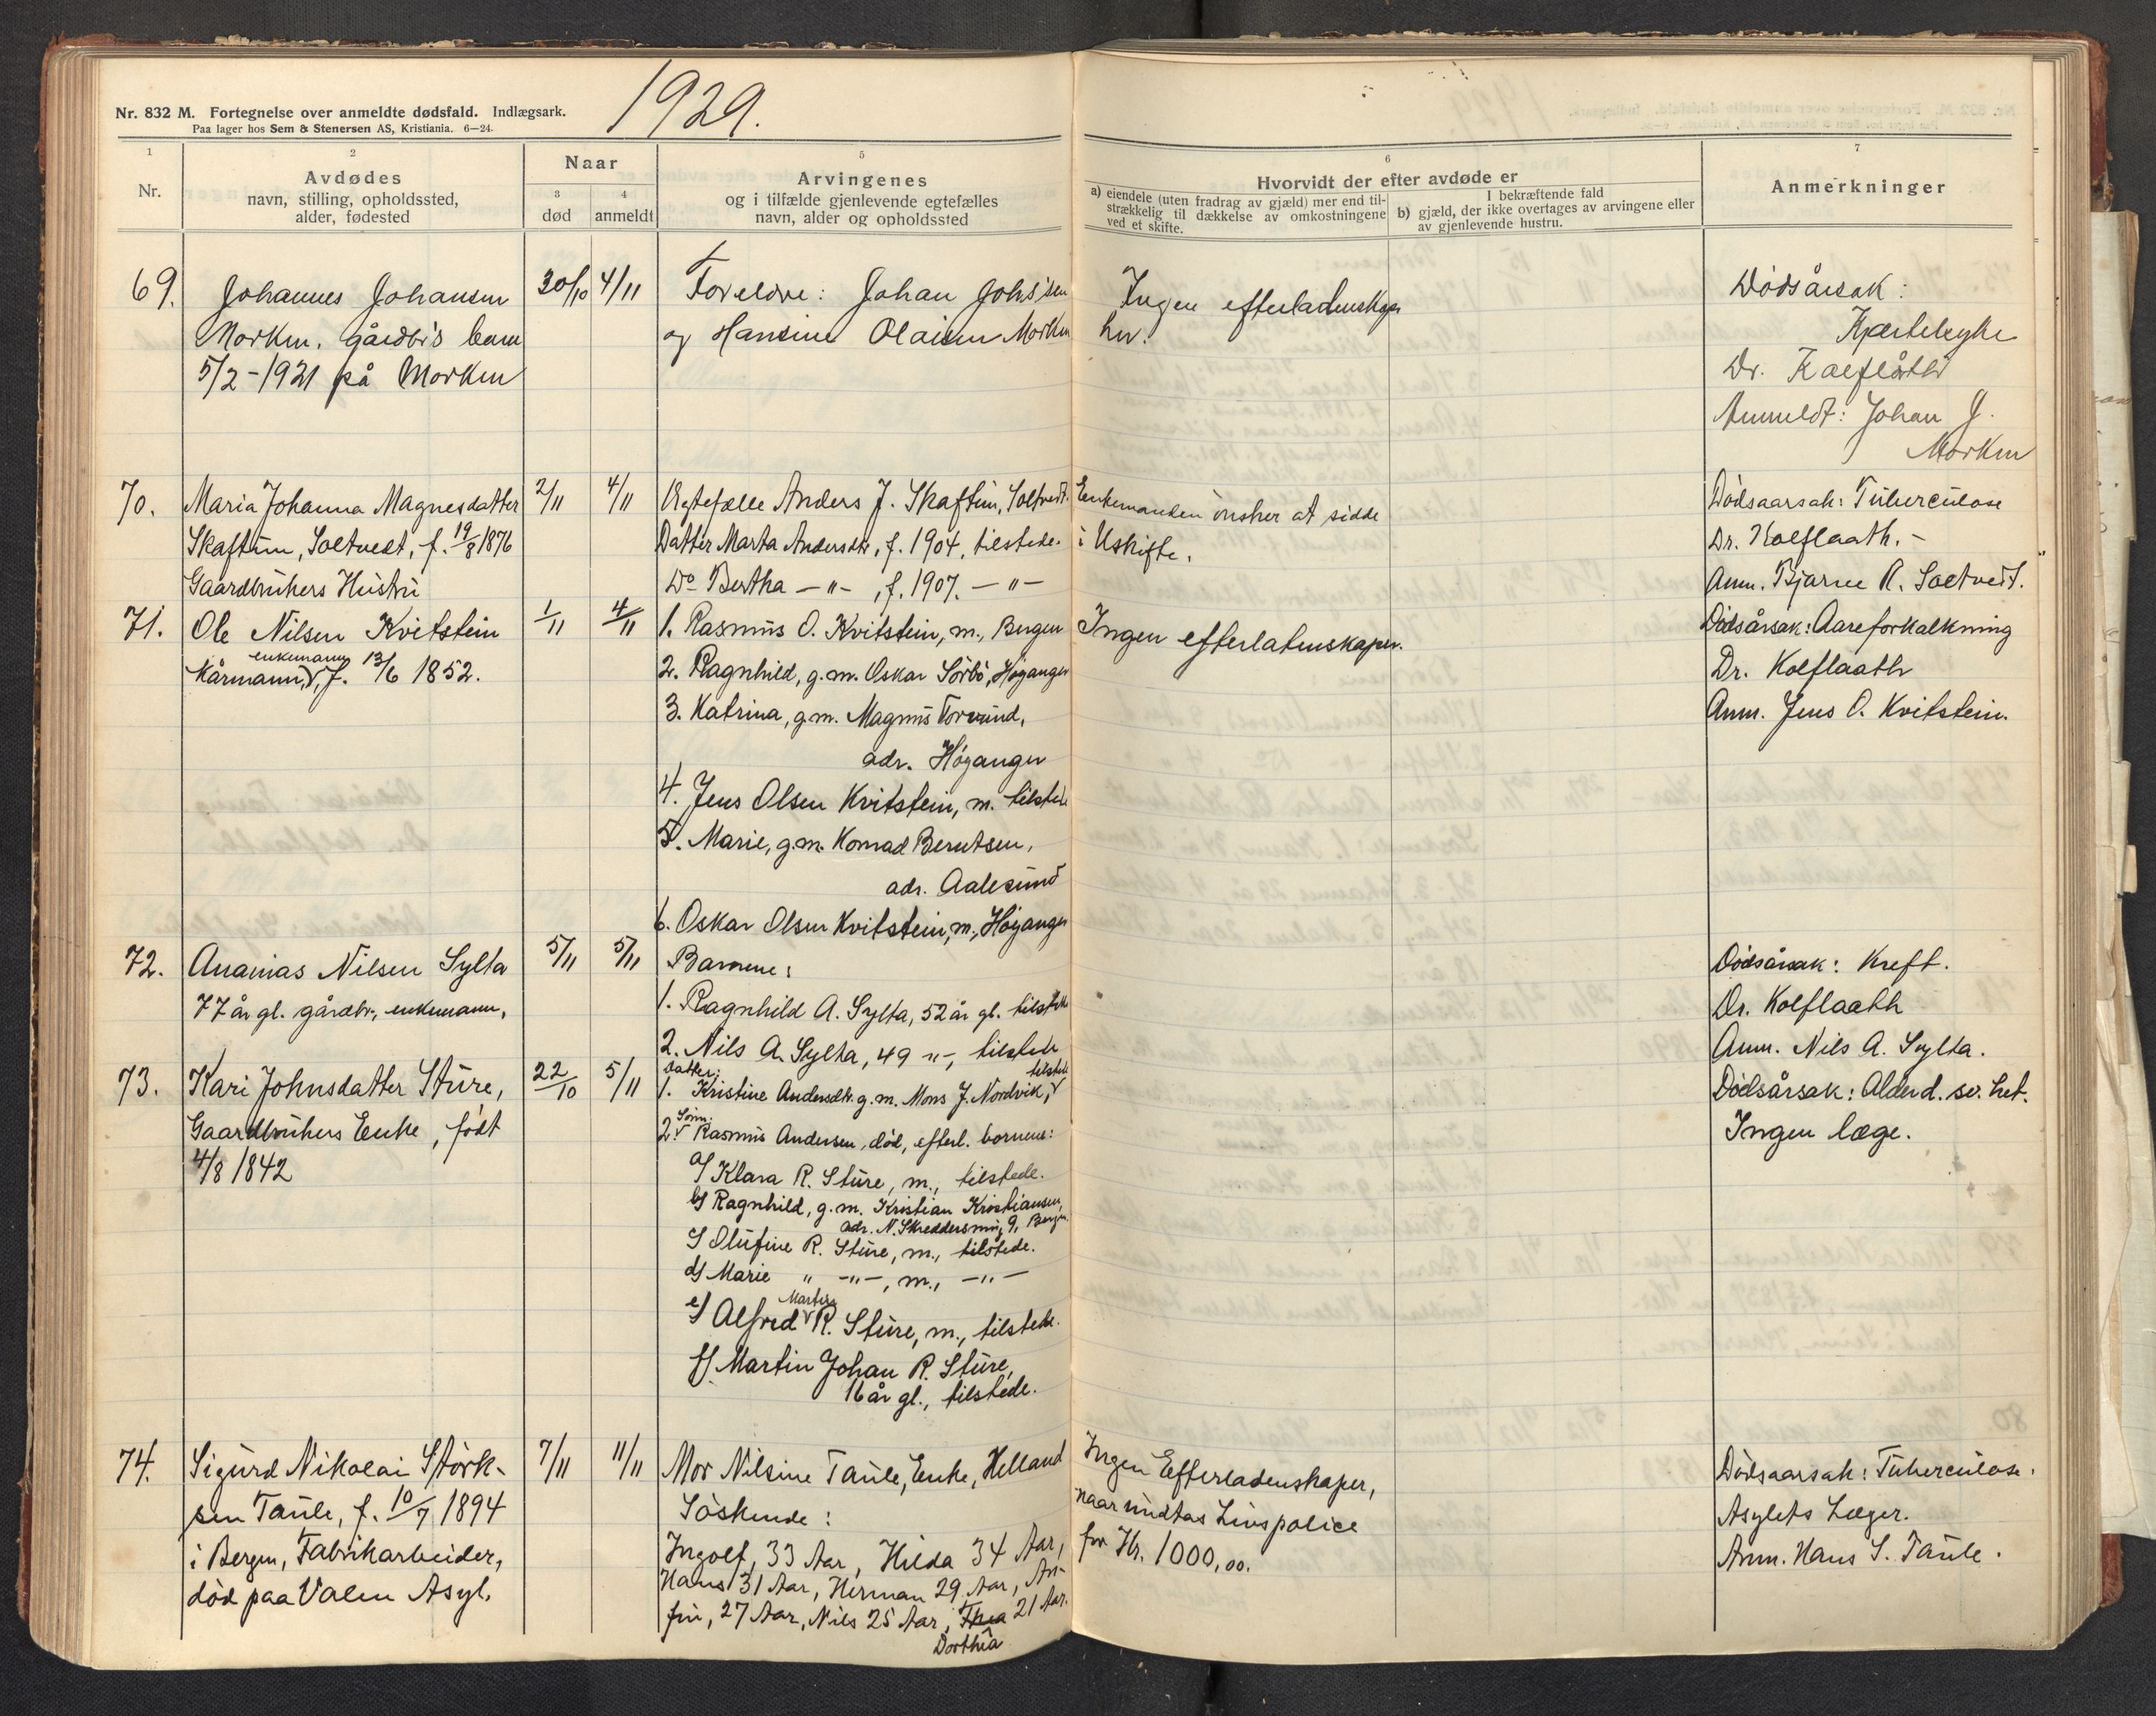 Nr. 832 M. Fortegnelse over anmeldte dødsfald. Indlægsark.
Paa lager hos Sem & Stenersen AS, Kristiania. 6—24.
1929.
1
Nr.
2
Avdødes
navn, stilling, opholdssted,
alder, fødested
Naar
3
død
4
anmeldt
5
Arvingenes
og i tilfælde gjenlevende egtefælles
navn, alder og opholdssted
6
Hvorvidt der efter avdøde er
a) eiendele (uten fradrag av gjæld) mer end til-
strækkelig til dækkelse av omkostningene
ved et skifte.
I bekræftende fald
b) gjæld, der ikke overtages av arvingene eller
av gjenlevende hustru.
7
Anmerkninger
69.
Johannes Johansen
Morken, gårdbr's barn
5/2-1921 på Morken
30/10
4/11
Foreldre: Johan Johs'sen
og Hansine Olaisen Morken
Ingen efterladenskap
Dødsårsak:
Dr. Kolflåth
Anmeldt: Johan J.
Morken
70.
Maria Johanna Magnesdatter
Skaftun, Soltvedt, f. 19/8 1876
Gaardbrukers Hustru
2/11
4/11
Egtefælle Anders J. Skaftun, Soltvedt.
Datter Marta Andersdtr, f. 1904, tilstede.
Do Bertha — " — , f. 1907. — " —
Enkemanden ønsker at sidde
i Uskifte.
Dødsaarsak: Tuberculose
Dr. Kolflaath. -
Anm. Bjarne A. Soltvedt.
71.
Ole Nilsen Kvitstein
enkemann
Kårmann, f. 13/6 1852.
1/11
4/11
1. Rasmus O. Kvitstein, m., Bergen
2. Ragnhild, g.m. Oskar Sørbø, Høyanger
3. Katrina, g.m. Magnus Torvund,
adr. Høyanger
4. Jens Olsen Kvitstein, m. tilstede
5. Marie, g.m. Konrad Berntsen,
adr. Aalesund
6. Oskar Olsen Kvitstein, m., Høyanger
Ingen efterlatenskaper.
Dødsårsak: Aareforkalkning
Dr. Kolflaath
Anm. Jens O. Kvitstein.
72.
Ananias Nilsen Sylta
77 år gl. gårdbr., enkemann,
5/11
5/11
Barnene:
1. Ragnhild A. Sylta, 52 år gl. tilstede
2. Nils A. Sylta, 49 -"-, tilstede
Dødsårsak: Kreft.
Dr. Kolflaath
Anm. Nils A. Sylta.
73.
Kari Johnsdatter Sture,
Gaardbrukers Enke, født
4/8 1842
22/10
5/11
Datter: tilstede
1. Kristine Andersdtr. g.m. Mons J. Nordvik,
Sønn:
2. Rasmus Andersen, død, efterl. børnene:
a) Klara R. Sture, m., tilstede.
b) Ragnhild, g.m. Kristian Kristiansen,
adr. N. Skreddersmug 9, Bergen
c) Olufine R. Sture, m., tilstede.
d) Marie " -"-, m., -"-
Martin
e) Alfred R. Sture, m., tilstede.
f) Martin Johan R. Sture,
16 år gl., tilstede.
Dødsårsak: Alderd. sv. het.
Ingen læge.
74.
Sigurd Nikolai Størk-
sen Taule, f. 10/7 1894
i Bergen, Fabrikarbeider,
død paa Valen Asyl.
7/11
11/11
Mor Nilsine Taule, Enke, Helland
Søskende:
Ingolf, 33 Aar, Hilda 34 Aar,
Hans 31 Aar, Herman 29 Aar, An-
fin, 27 Aar, Nils 25 Aar, Thea 21 Aar.
Dorthea
Ingen Efterladenskaper,
naar undtas Livspolice
for Kr. 1000,00.
Dødsaarsak: Tuberculose.
Asylets Læger.
Anm. Hans S. Taule.